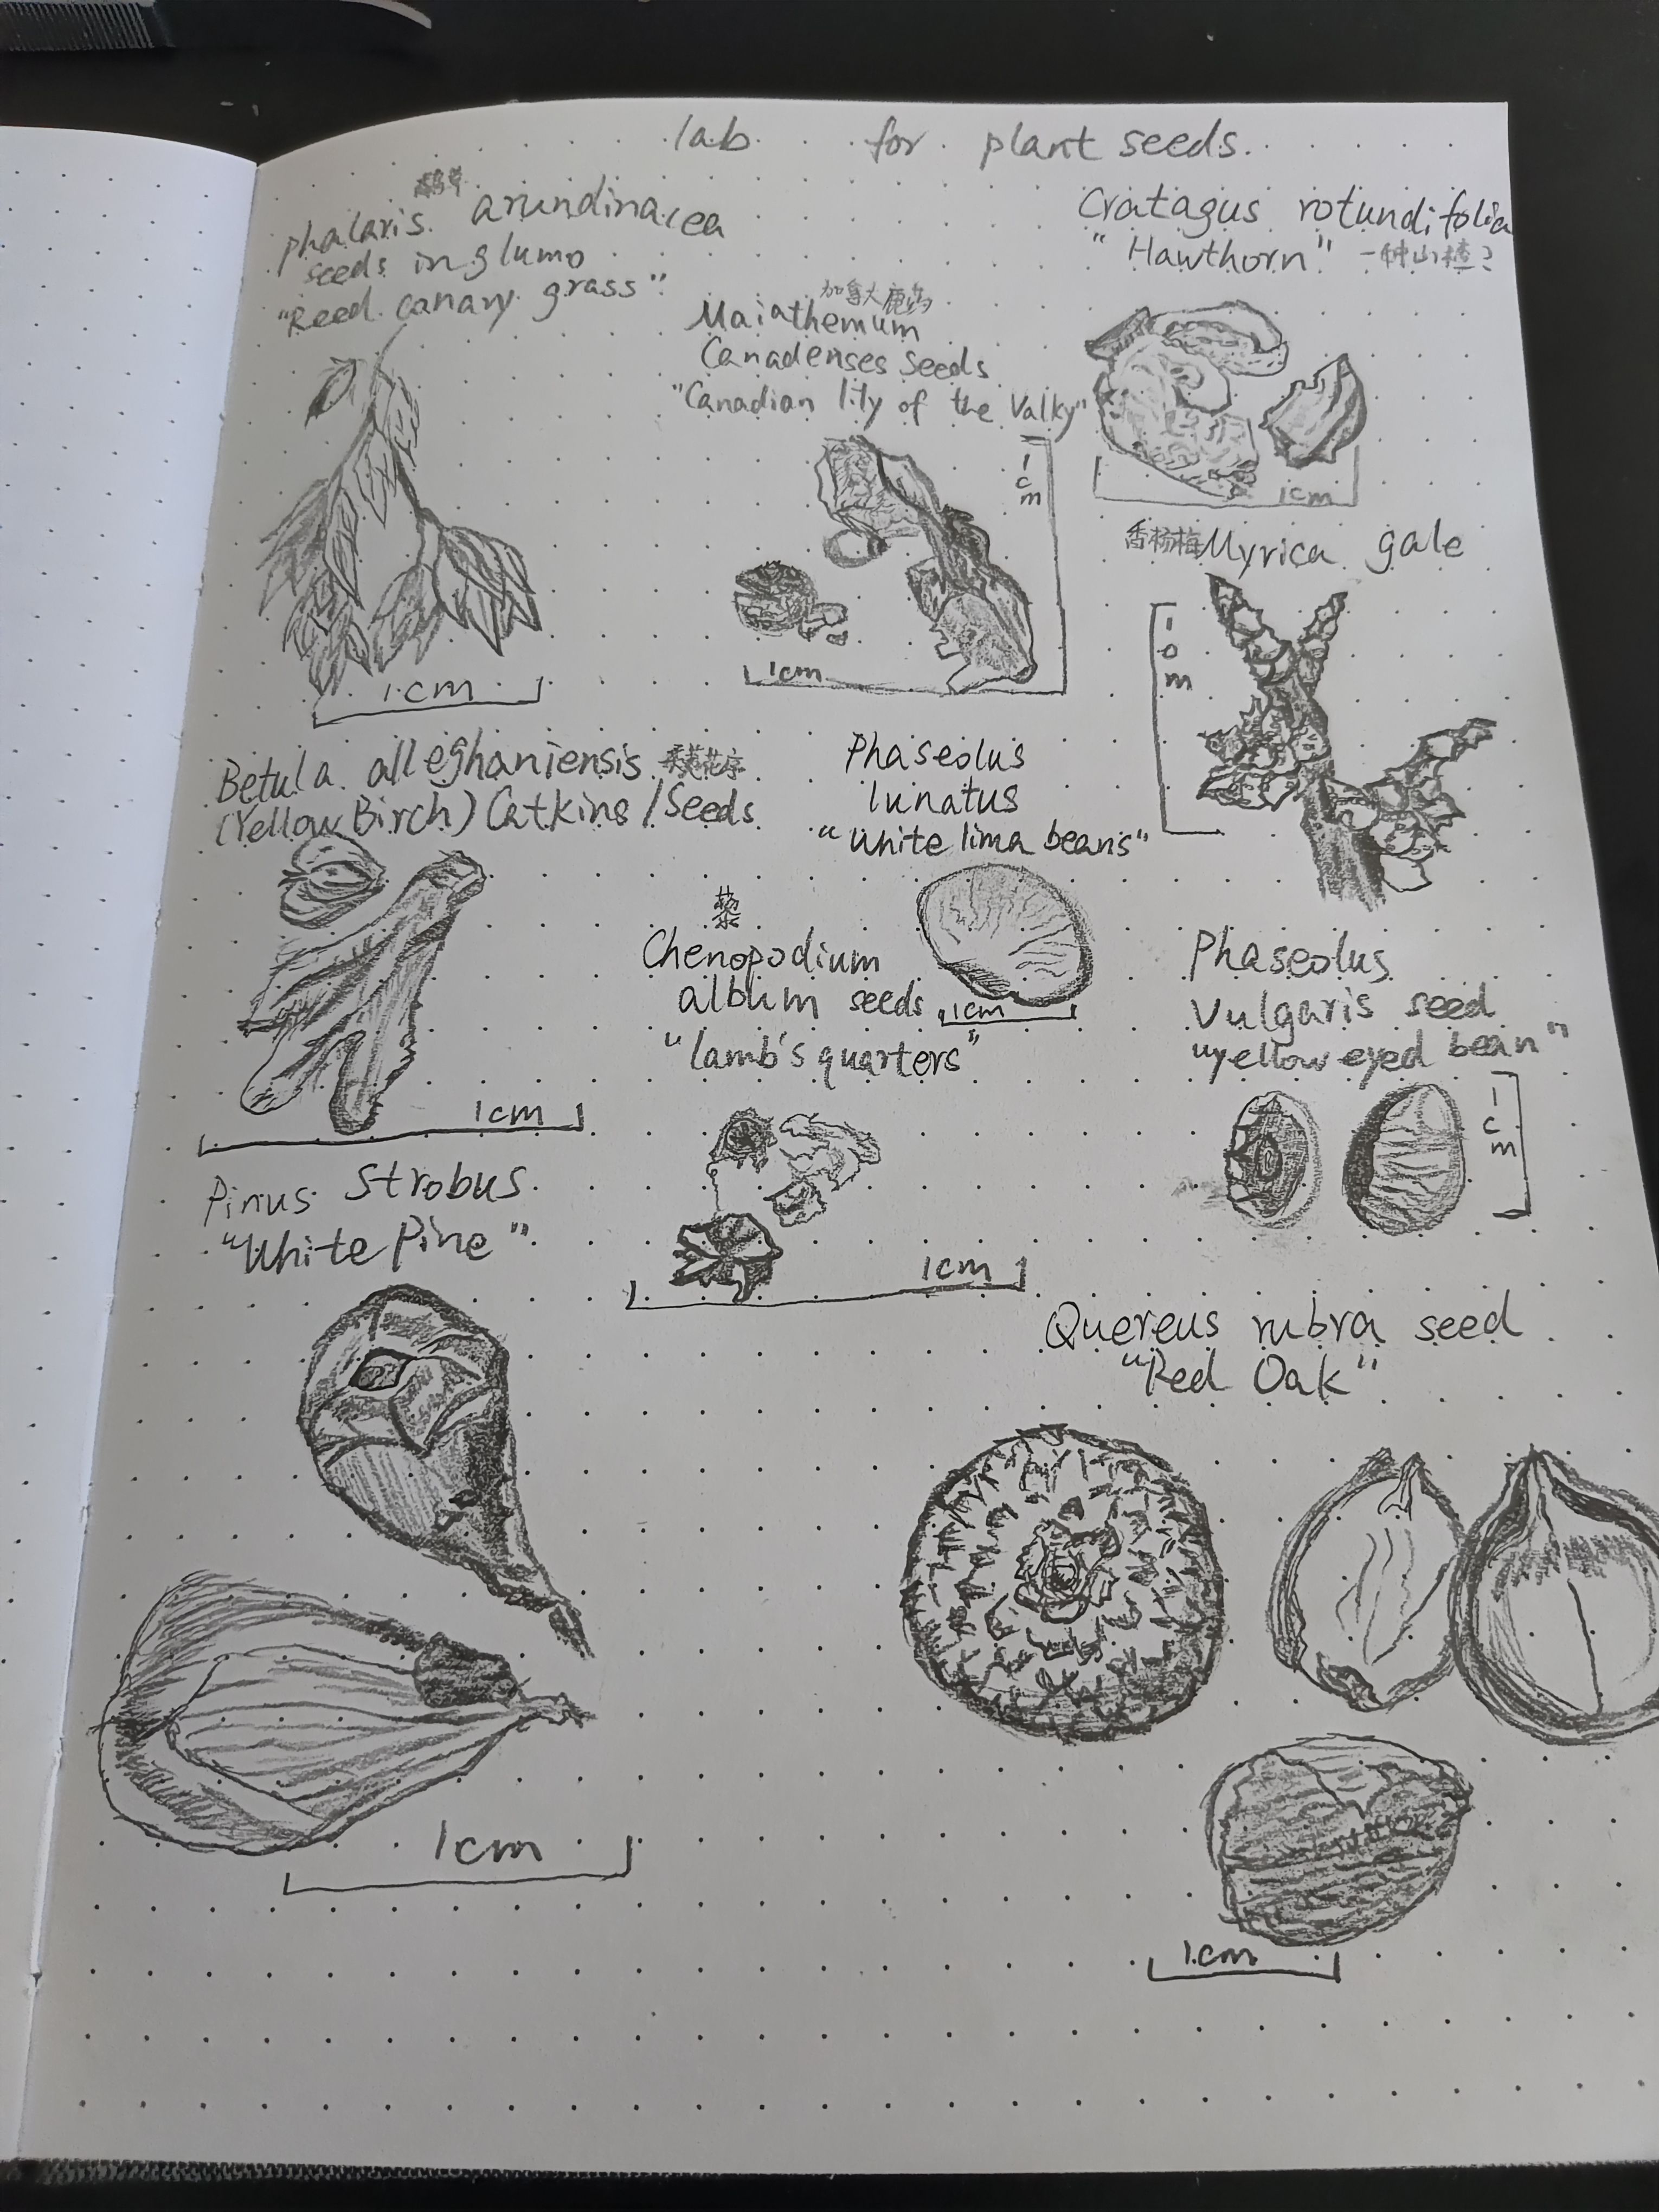 lab for plant seeds.
phalaris. arundinacea
seeds in glumo
"Reed. canary grass"
1cm
加拿大鹿药
Maiathemum
Canadenses seeds
"Canadian lily of the Valky"
1cm
1cm
Cratagus rotundifolia
"Hawthorn" 一种山楂?
1cm
香杨梅 Myrica gale
Betula alleghaniensis
(Yellow Birch) Catkins / Seeds
1cm
Phaseolus
lunatus
"White lima beans"
1cm
藜
Chenopodium
album seeds
"lamb's quarters"
1cm
Phaseolus
Vulgaris seed
"yellow eyed bean"
1cm
Pinus Strobus
"White Pine"
1cm
Quereus rubra seed
"Red Oak"
1cm